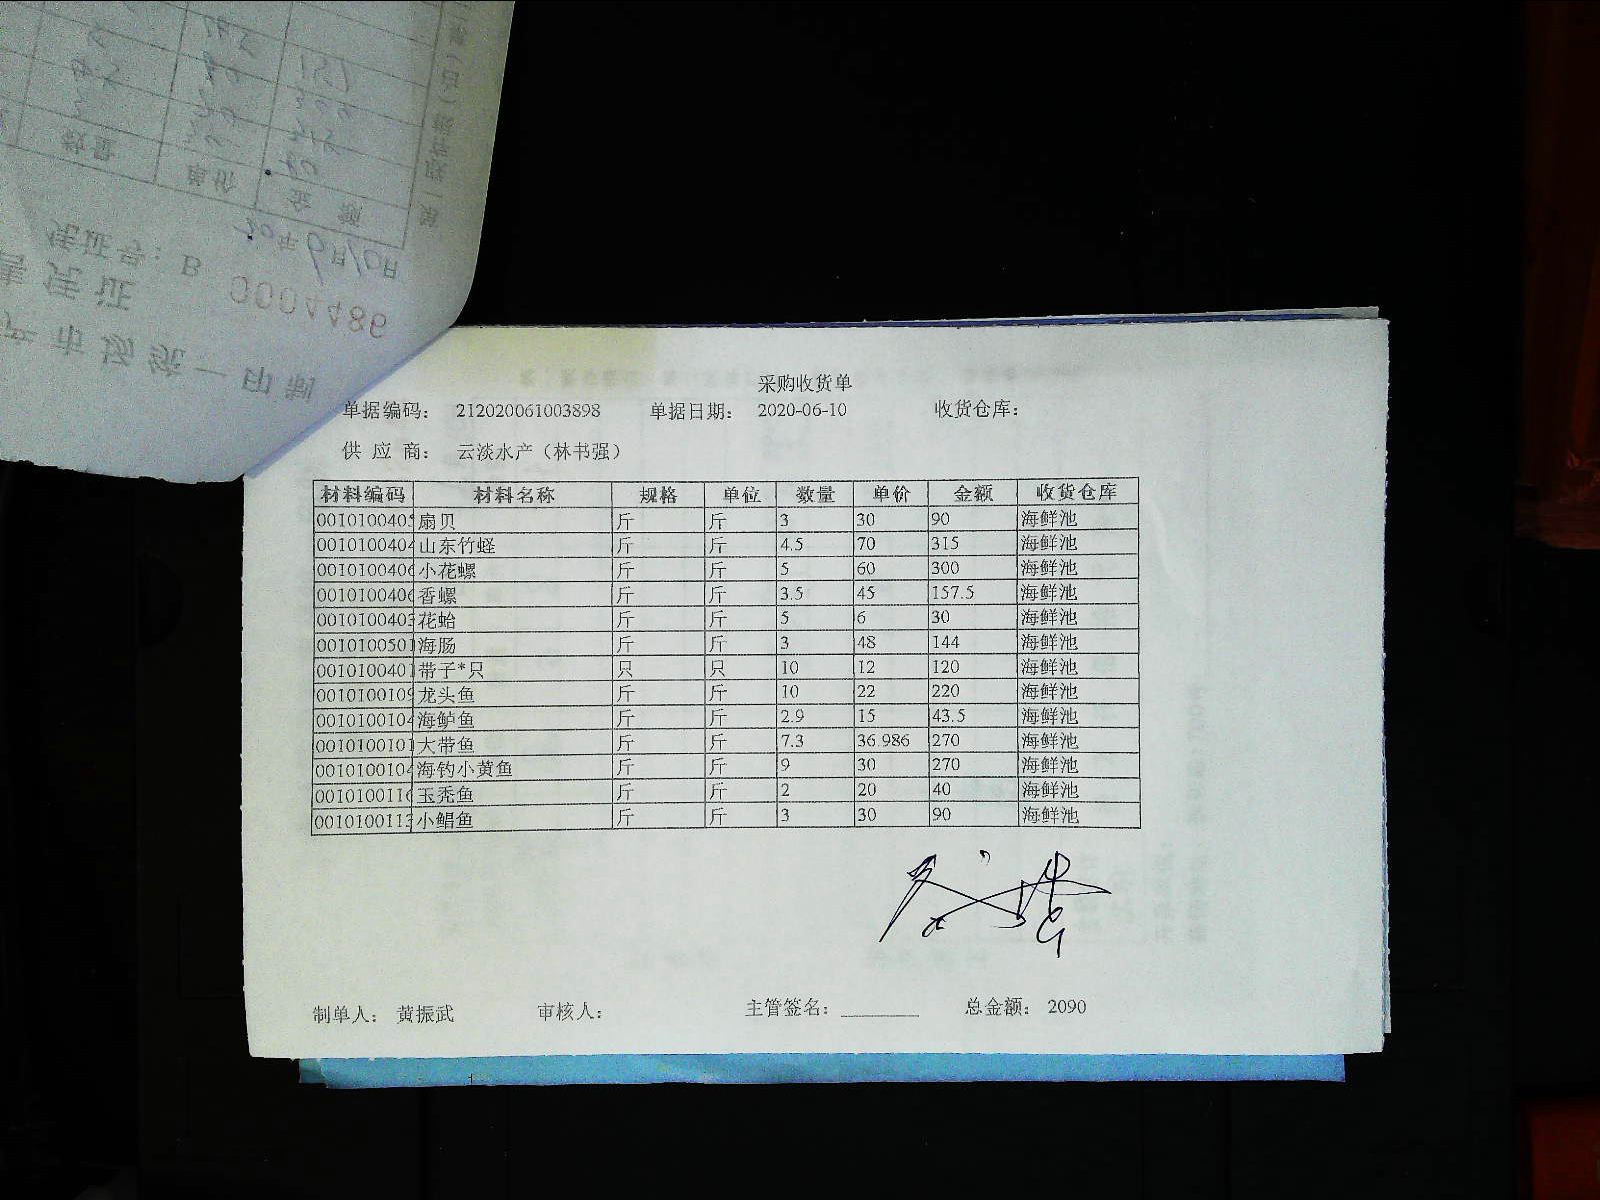 采购收货单
单据编码： 212020061003898 单据日期： 2020-06-10 收货仓库：
供 应 商： 云淡水产（林书强）
材料编码 材料名称 规格 单位 数量 单价 金额 收货仓库
0010100405 扇贝 斤 斤 3 30 90 海鲜池
0010100404 山东竹蛏 斤 斤 4.5 70 315 海鲜池
0010100406 小花螺 斤 斤 5 60 300 海鲜池
0010100406 香螺 斤 斤 3.5 45 157.5 海鲜池
0010100403 花蛤 斤 斤 5 6 30 海鲜池
0010100501 海肠 斤 斤 3 48 144 海鲜池
0010100401 带子*只 只 只 10 12 120 海鲜池
0010100109 龙头鱼 斤 斤 10 22 220 海鲜池
0010100104 海鲈鱼 斤 斤 2.9 15 43.5 海鲜池
0010100101 大带鱼 斤 斤 7.3 36.986 270 海鲜池
0010100104 海钓小黄鱼 斤 斤 9 30 270 海鲜池
0010100116 玉秃鱼 斤 斤 2 20 40 海鲜池
0010100113 小鲳鱼 斤 斤 3 30 90 海鲜池
制单人： 黄振武 审核人： 主管签名： 总金额： 2090
产市场统一印制
售凭证
凭证号：B 0004486
20年6月10日
数量 单价 金额